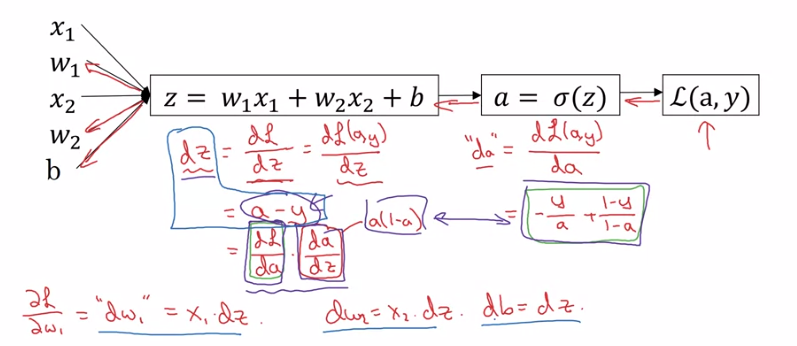 x₁
w₁
x₂
w₂
b
z = w₁x₁ + w₂x₂ + b
a = σ(z)
ℒ(a, y)
dz = dℒ/dz = dℒ(a,y)/dz
"da" = dℒ(a,y)/da
= a - y
= dℒ/da · da/dz
a(1-a)
= -y/a + 1-y/1-a
∂ℒ/∂w₁ = "dw₁" = x₁·dz.
dw₂ = x₂·dz.
db = dz.